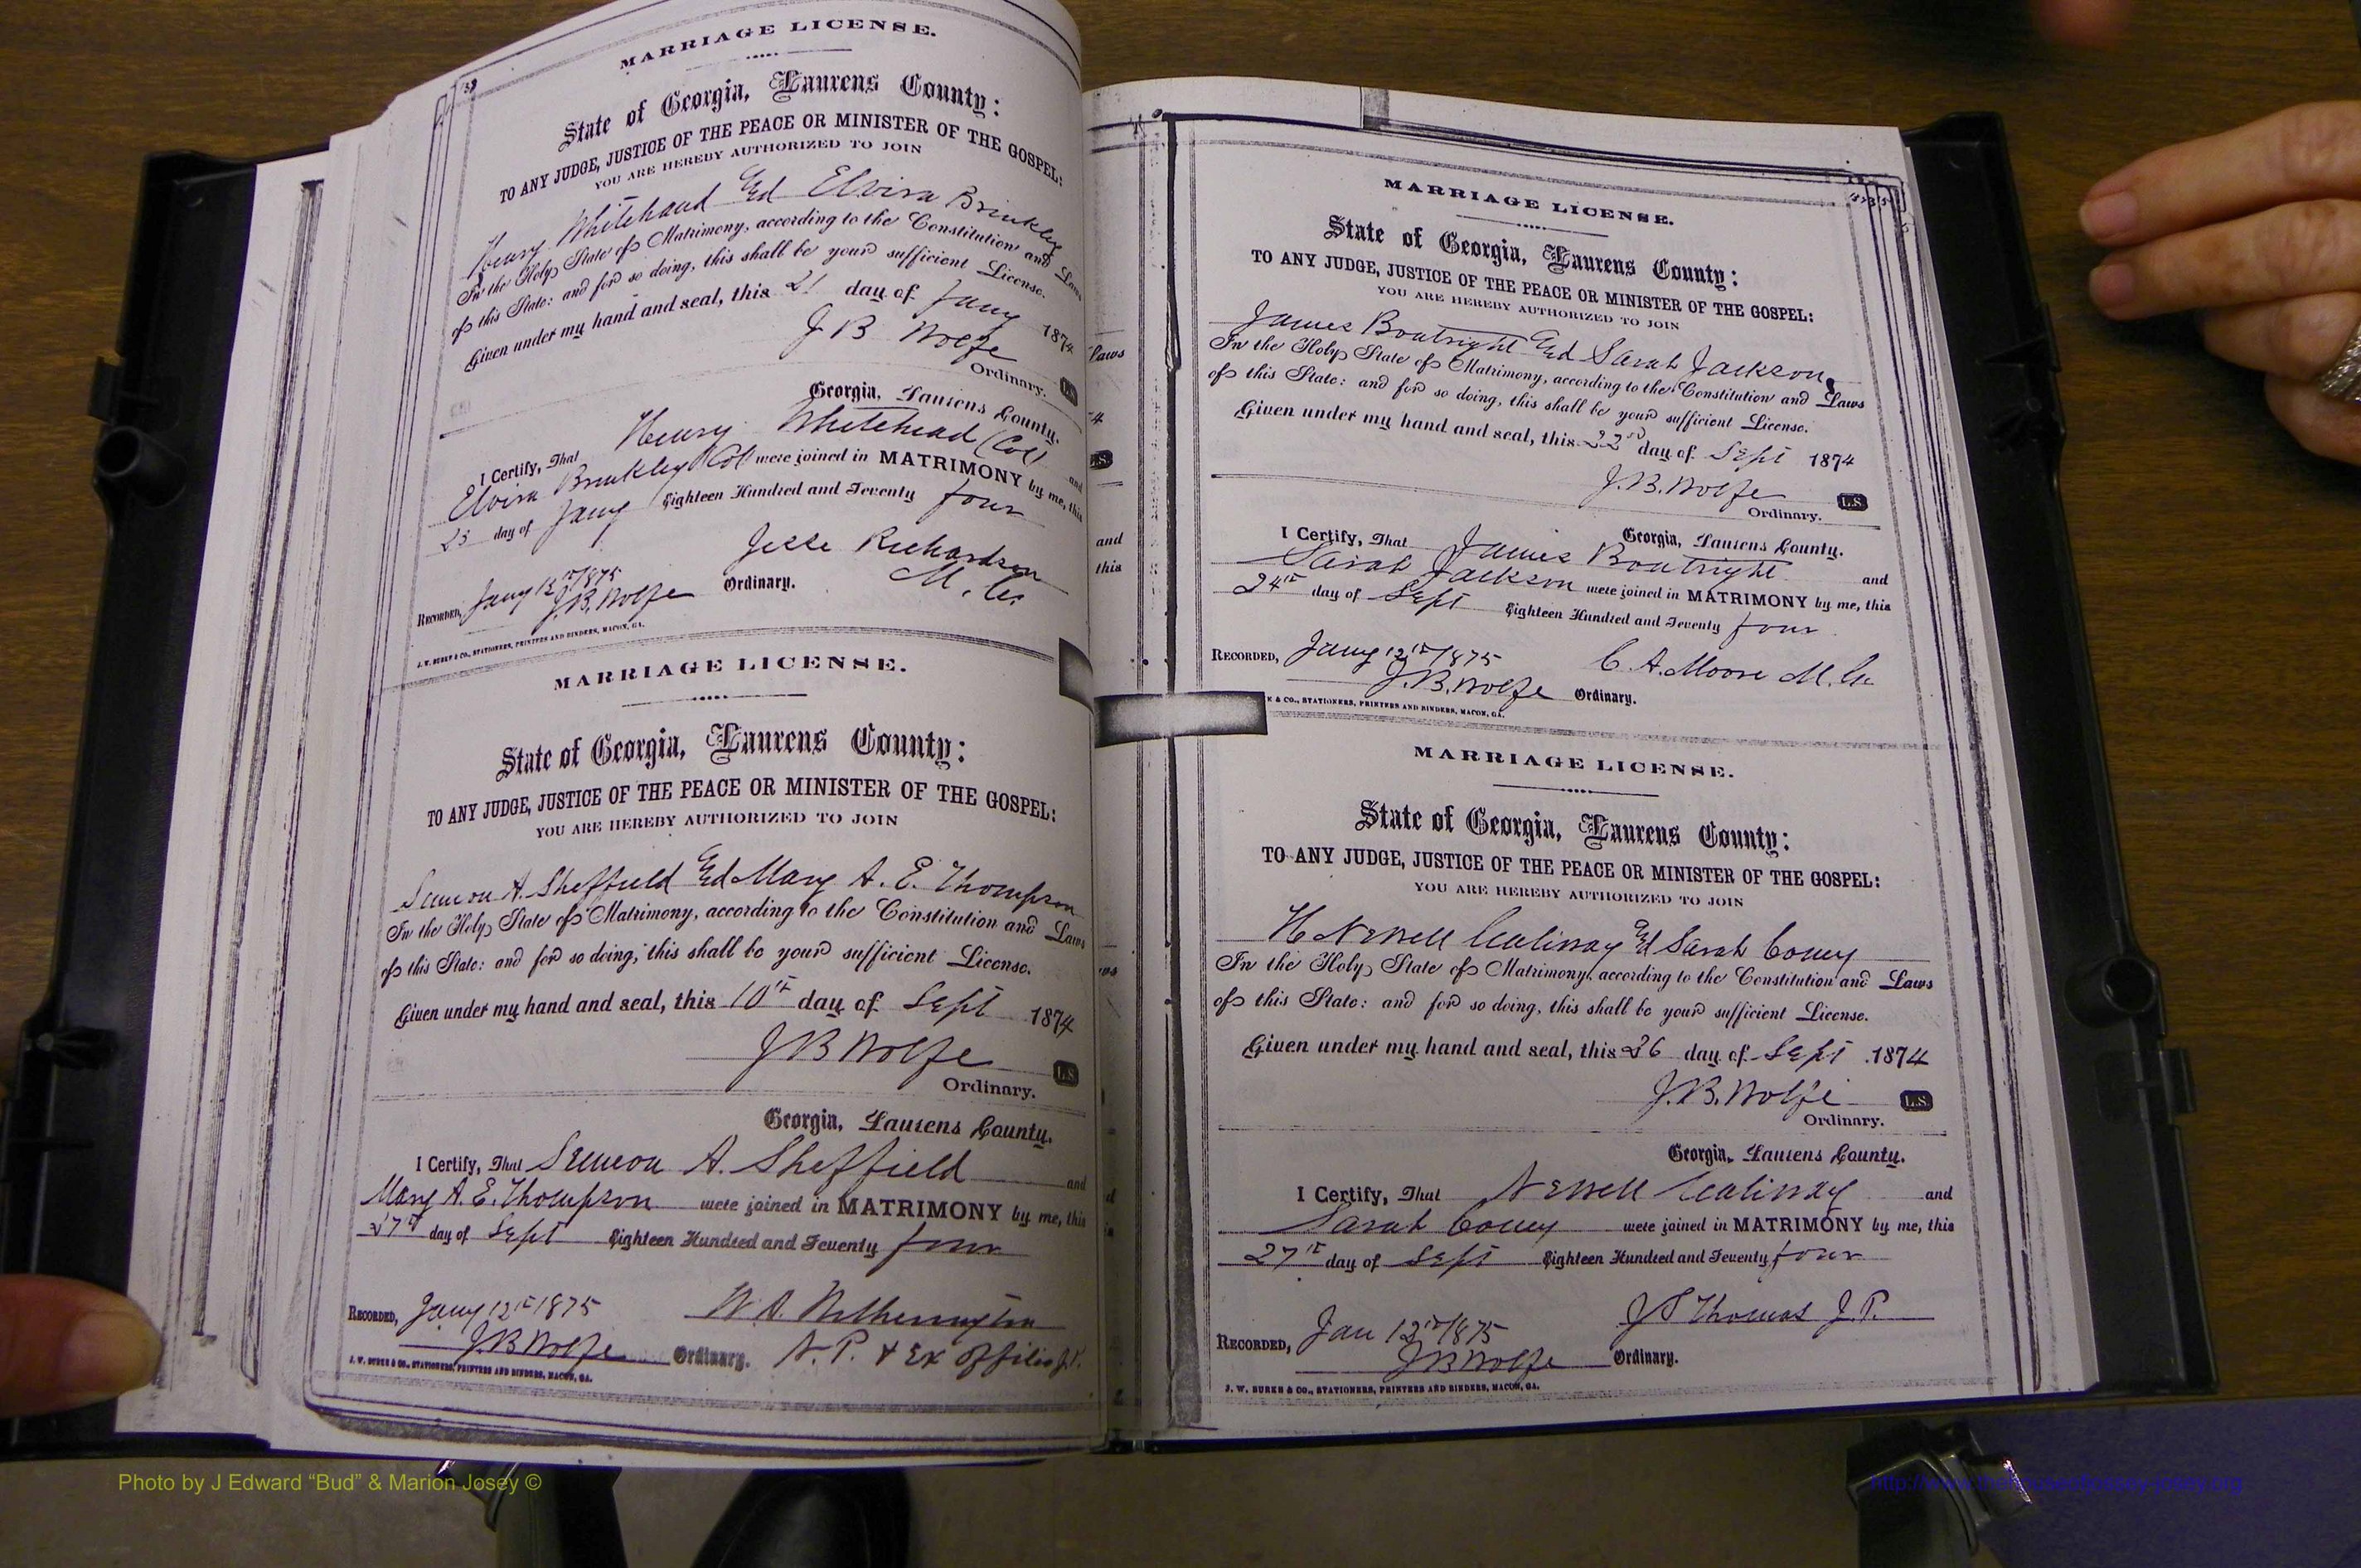 MARRIAGE LICENSE.
State of Georgia, Laurens County:
TO ANY JUDGE, JUSTICE OF THE PEACE OR MINISTER OF THE GOSPEL:
YOU ARE HEREBY AUTHORIZED TO JOIN
Henry Whitehead Elvira Brinkley
In the Holy State of Matrimony, according to the Constitution and Laws
of this State: and for so doing, this shall be your sufficient License.
Given under my hand and seal, this 21 day of Jany 1874
J B Wolfe
Ordinary. L.S.
Georgia, Laurens County.
I Certify, That Henry Whitehead (Col) and
Elvira Brinkley (Col) were joined in MATRIMONY by me, this
23 day of Jany Eighteen Hundred and Seventy four
Jesse Richardson
M. G.
RECORDED, Jany 12th 1875
J.B. Wolfe Ordinary.
J. W. BURKE & CO., STATIONERS, PRINTERS AND BINDERS, MACON, GA.
MARRIAGE LICENSE.
State of Georgia, Laurens County:
TO ANY JUDGE, JUSTICE OF THE PEACE OR MINISTER OF THE GOSPEL:
YOU ARE HEREBY AUTHORIZED TO JOIN
Simeon A. Sheffield Mary A. E. Thompson
In the Holy State of Matrimony, according to the Constitution and Laws
of this State: and for so doing, this shall be your sufficient License.
Given under my hand and seal, this 10th day of Sept 1874
J B Wolfe
Ordinary. L.S.
Georgia, Laurens County.
I Certify, That Simeon A. Sheffield and
Mary A. E. Thompson were joined in MATRIMONY by me, this
27th day of Sept Eighteen Hundred and Seventy four
RECORDED, Jany 12th 1875
J B Wolfe Ordinary.
W. A. Witherington
N. P. & Ex Officio J.P.
J. W. BURKE & CO., STATIONERS, PRINTERS AND BINDERS, MACON, GA.
Laws
and
this
MARRIAGE LICENSE.
State of Georgia, Laurens County:
TO ANY JUDGE, JUSTICE OF THE PEACE OR MINISTER OF THE GOSPEL:
YOU ARE HEREBY AUTHORIZED TO JOIN
James Boatright Sarah Jackson
In the Holy State of Matrimony, according to the Constitution and Laws
of this State: and for so doing, this shall be your sufficient License.
Given under my hand and seal, this 22nd day of Sept 1874
J. B. Wolfe
Ordinary. L.S.
Georgia, Laurens County.
I Certify, That James Boatright and
Sarah Jackson were joined in MATRIMONY by me, this
24th day of Sept Eighteen Hundred and Seventy four
RECORDED, Jany 12th 1875
J. B. Wolfe Ordinary.
C. A. Moore M. G.
& CO., STATIONERS, PRINTERS AND BINDERS, MACON, GA.
MARRIAGE LICENSE.
State of Georgia, Laurens County:
TO ANY JUDGE, JUSTICE OF THE PEACE OR MINISTER OF THE GOSPEL:
YOU ARE HEREBY AUTHORIZED TO JOIN
H Newell Sarah Coney
In the Holy State of Matrimony, according to the Constitution and Laws
of this State: and for so doing, this shall be your sufficient License.
Given under my hand and seal, this 26 day of Sept 1874
J. B. Wolfe
Ordinary. L.S.
Georgia, Laurens County.
I Certify, That Newell and
Sarah Coney were joined in MATRIMONY by me, this
27th day of Sept Eighteen Hundred and Seventy four
J S Thomas J. P.
RECORDED, Jan 12th 1875
J B Wolfe Ordinary.
J. W. BURKE & CO., STATIONERS, PRINTERS AND BINDERS, MACON, GA.
Photo by J Edward “Bud” & Marion Josey ©
http://www.thehouseofjossey-josey.org